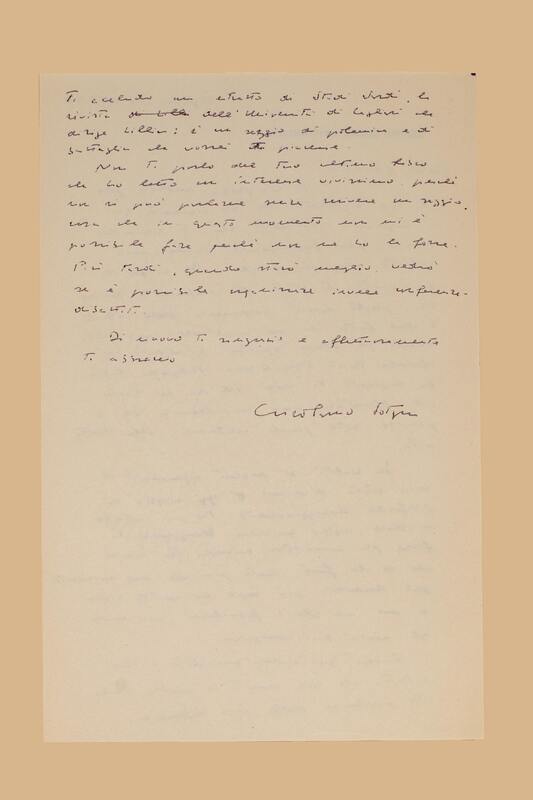 Ti accludo un estratto da Studi Sardi, la
rivista di Lilliu dell'Università di Cagliari che
dirige Lilliu: è un saggio di polemica e di
battaglia che vorrei piacesse.
Non ti parlo del tuo ultimo disco
che ho letto con interesse vivissimo perché
non si può parlarne senza scrivere un saggio,
cosa che in questo momento non mi è
possibile fare perché non ne ho la forza.
Più tardi, quando starò meglio, vedrò
se è possibile organizzare invece conferenze-
dibattiti.
Di nuovo ti ringrazio e affettuosamente
ti abbraccio